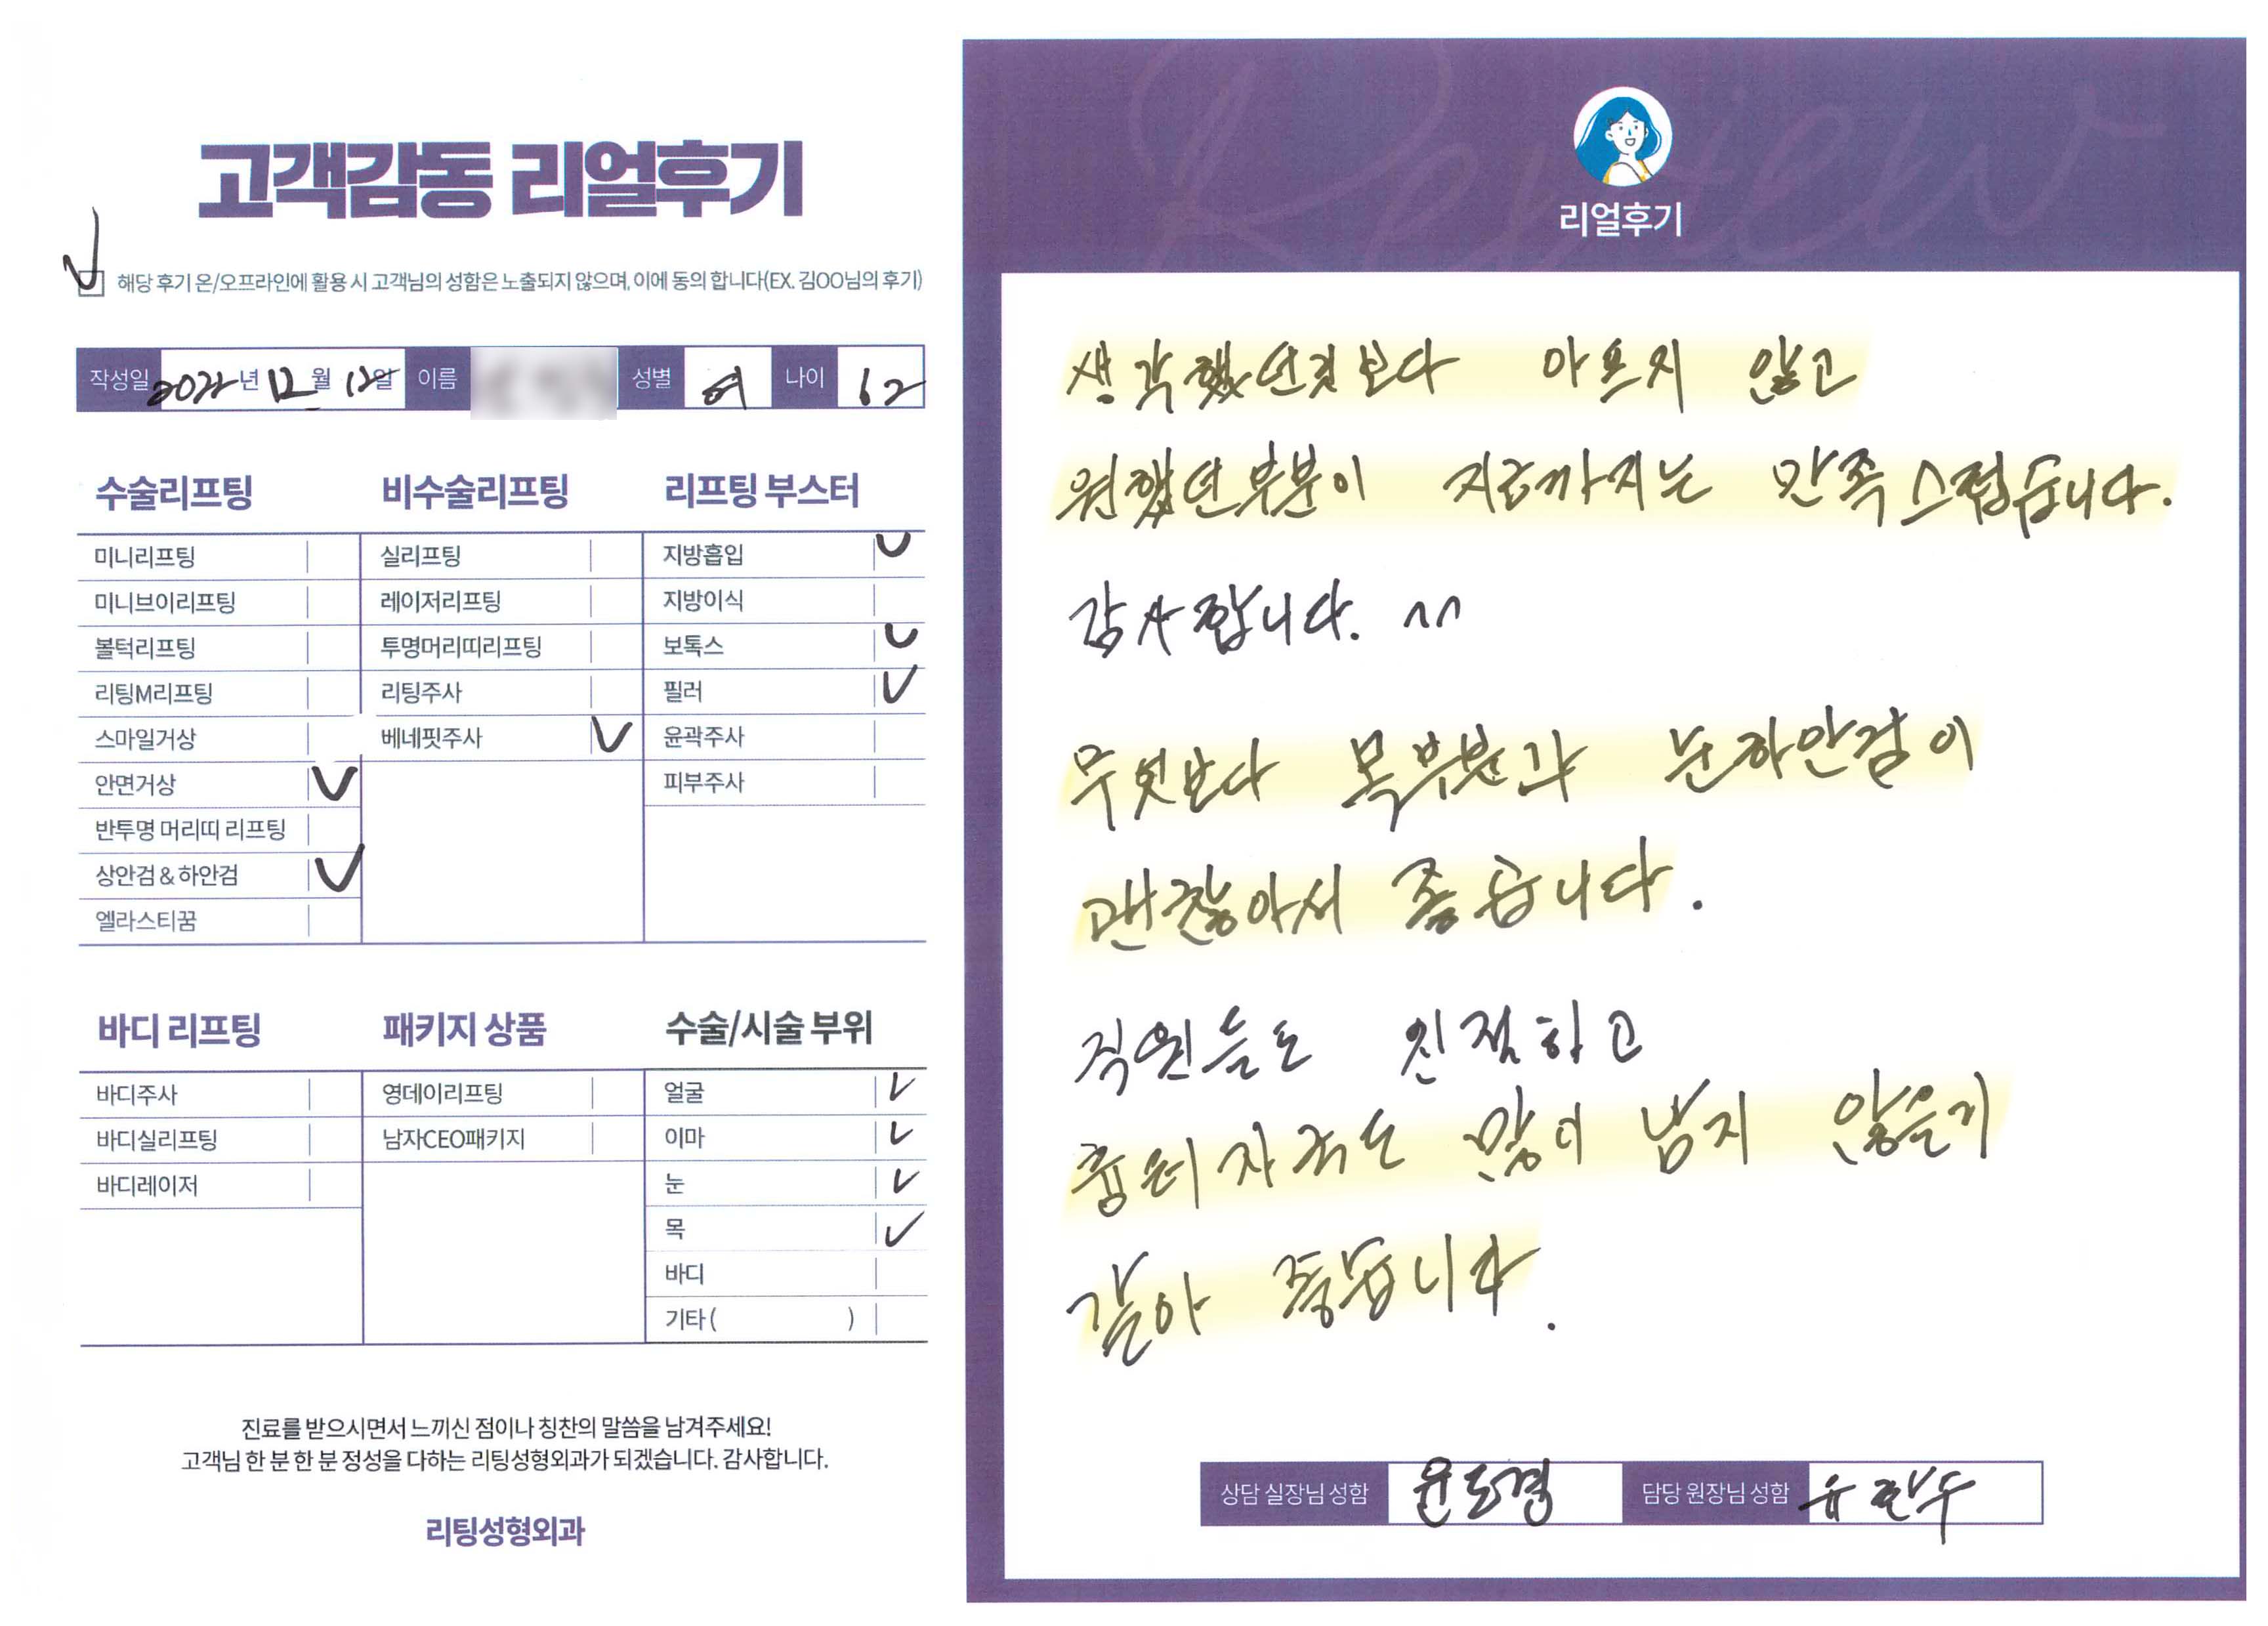 고객감동 리얼후기
해당 후기 온/오프라인에 활용 시 고객님의 성함은 노출되지 않으며, 이에 동의 합니다(EX. 김OO님의 후기)
작성일 2022년 12월 12일 이름 성별 여 나이 62
수술리프팅
미니리프팅
미니브이리프팅
볼턱리프팅
리팅M리프팅
스마일거상
안면거상
반투명 머리띠 리프팅
상안검 & 하안검
엘라스티꿈
비수술리프팅
실리프팅
레이저리프팅
투명머리띠리프팅
리팅주사
베네핏주사
리프팅 부스터
지방흡입
지방이식
보톡스
필러
윤곽주사
피부주사
바디 리프팅
바디주사
바디실리프팅
바디레이저
패키지 상품
영데이리프팅
남자CEO패키지
수술/시술 부위
얼굴
이마
눈
목
바디
기타 ( )
진료를 받으시면서 느끼신 점이나 칭찬의 말씀을 남겨주세요!
고객님 한 분 한 분 정성을 다하는 리팅성형외과가 되겠습니다. 감사합니다.
리팅성형외과
Review
리얼후기
생각했던것보다 아프지 않고
원했던부분이 지금까지는 만족스럽습니다.
감사합니다. ^^
무엇보다 목부분과 눈하안검이
괜찮아서 좋습니다.
직원들도 친절하고
흉터자국도 많이 남지 않을거
같아 좋습니다.
상담 실장님 성함 윤도경 담당 원장님 성함